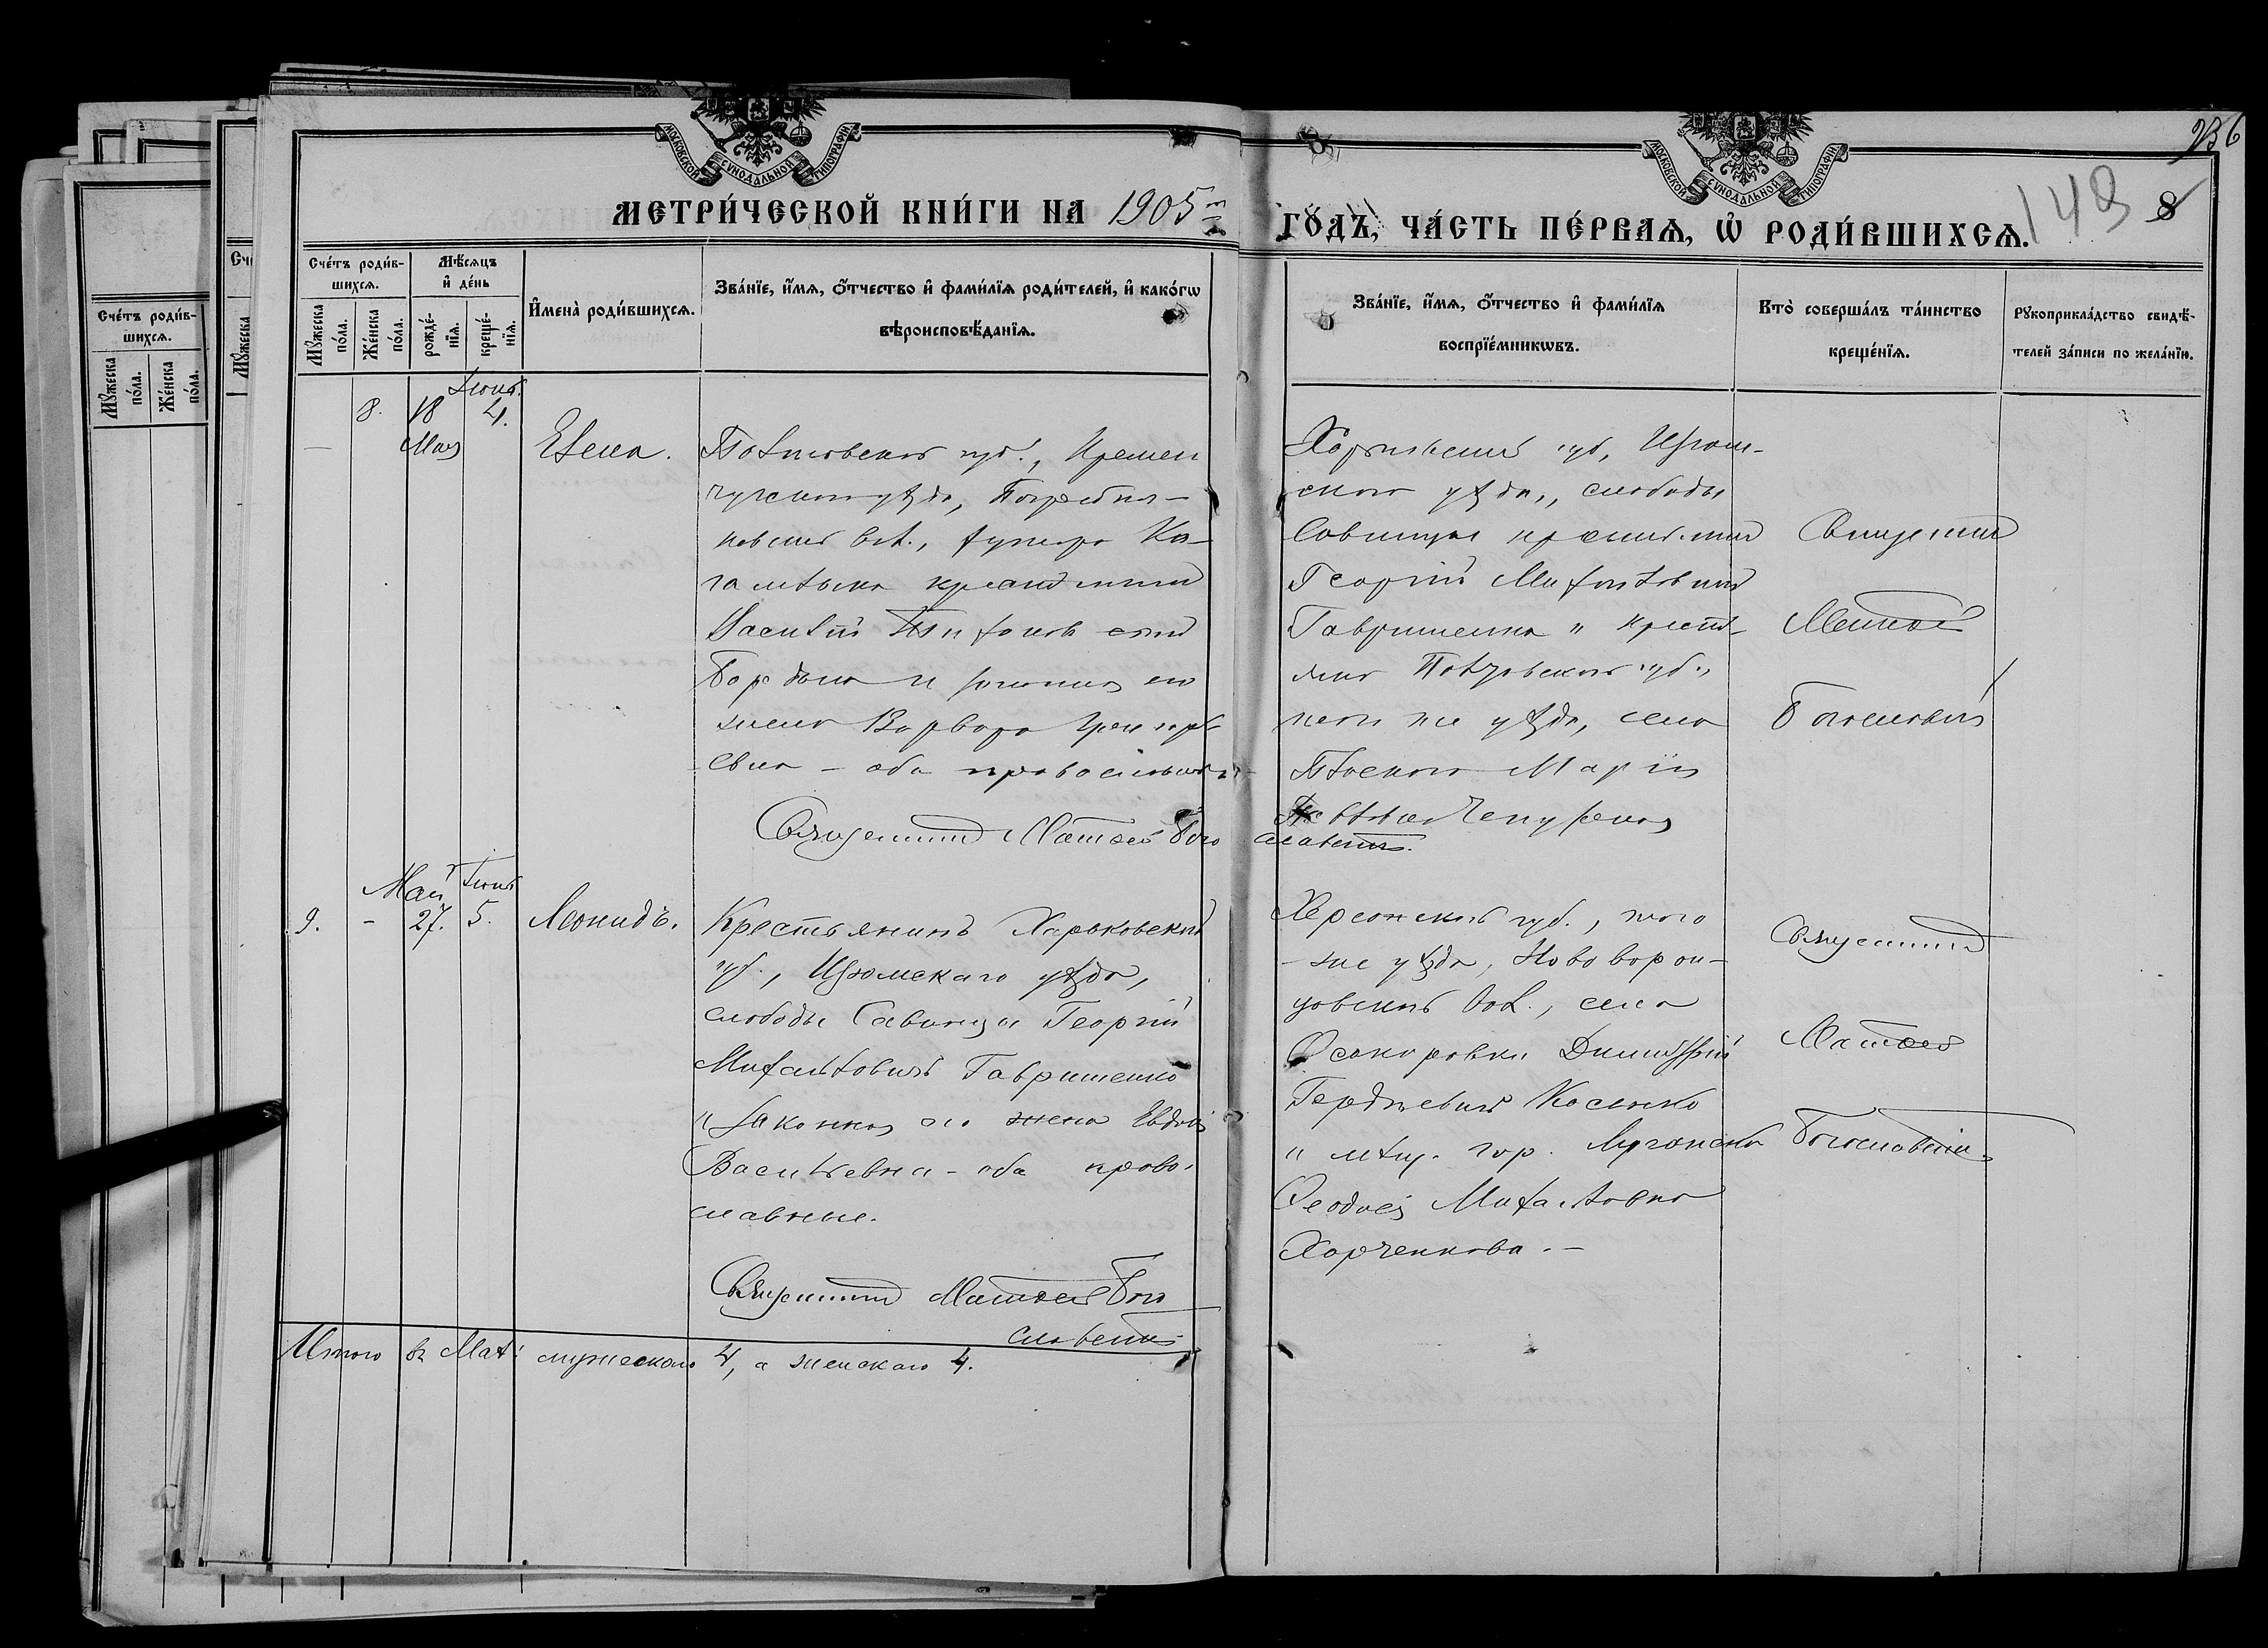 МОСКОВСКОЙ СѴНОДАЛЬНОЙ ТИПОГРАФІИ
МОСКОВСКОЙ СѴНОДАЛЬНОЙ ТИПОГРАФІИ
136
149 8
МЕТРИ́ЧЕСКОЙ КНИ́ГИ НА 1905 й
ГО́ДЪ, ЧА́СТЬ ПЕ́РВАѦ, Ѡ҆ РОДИ́ВШИХСѦ.
Сче́тъ роди́в-
шихсѧ.
Мꙋ́жеска по́ла.
Же́нска по́ла.
Мѣ́сѧцъ
и҆ де́нь
рожде́-нїѧ.
креще́-нїѧ.
И҆мена̀ роди́вшихсѧ.
Зва́нїе, и҆́мѧ, ѻ҆́тчество и҆ фами́лїѧ роди́телей, и҆ како́гѡ
вѣроисповѣ́данїѧ.
Зва́нїе, и҆́мѧ, ѻ҆́тчество и҆ фами́лїѧ
воспрїе́мникѡвъ.
Кто̀ соверша́лъ та́инство
креще́нїѧ.
Рꙋкоприкла́дство свидѣ́-
телей за́писи по жела́нїю.
Сче́тъ роди́в-
шихсѧ.
Мꙋ́жеска по́ла.
Же́нска по́ла.
Іюнь
— 8. 18 4.
Мая
Елена.
Полтавской губ., Кремен
чугскаго уѣзда,
вол., хутора
крестьянинъ
Василій
и законная его
жена Варвара Григорь
евна - оба православные
Священникъ Матѳей Бого
словскій.
Харьковской губ, Изюм-
скаго уѣзда, слободы
Савинцы крестьянинъ
Георгій Михайловичъ
Гавришенко и кресть-
янка Полтавской губ.,
того же уѣзда, села
Марія
Священникъ
Матѳей
Богословскій
Май Іюнь
9. - 27. 5.
Леонидъ.
Крестьянинъ Харьковской
губ., Изюмскаго уѣзда,
слободы Савинцы Георгій
Михайловичъ Гавришенко
и законная его жена Евдокія
Васильевна - оба право-
славные.
Священникъ Матѳей Бого
словскій
Херсонской губ., того
же уѣзда, Нововорон-
цовской вол., села
Осокоровки Димитрій
Косенко
и мѣщ. гор. Луганска
Михайловна
Харченкова. —
Священникъ
Матѳей
Богословскій.
Итого въ Маѣ: мужескаго 4, а женскаго 4.